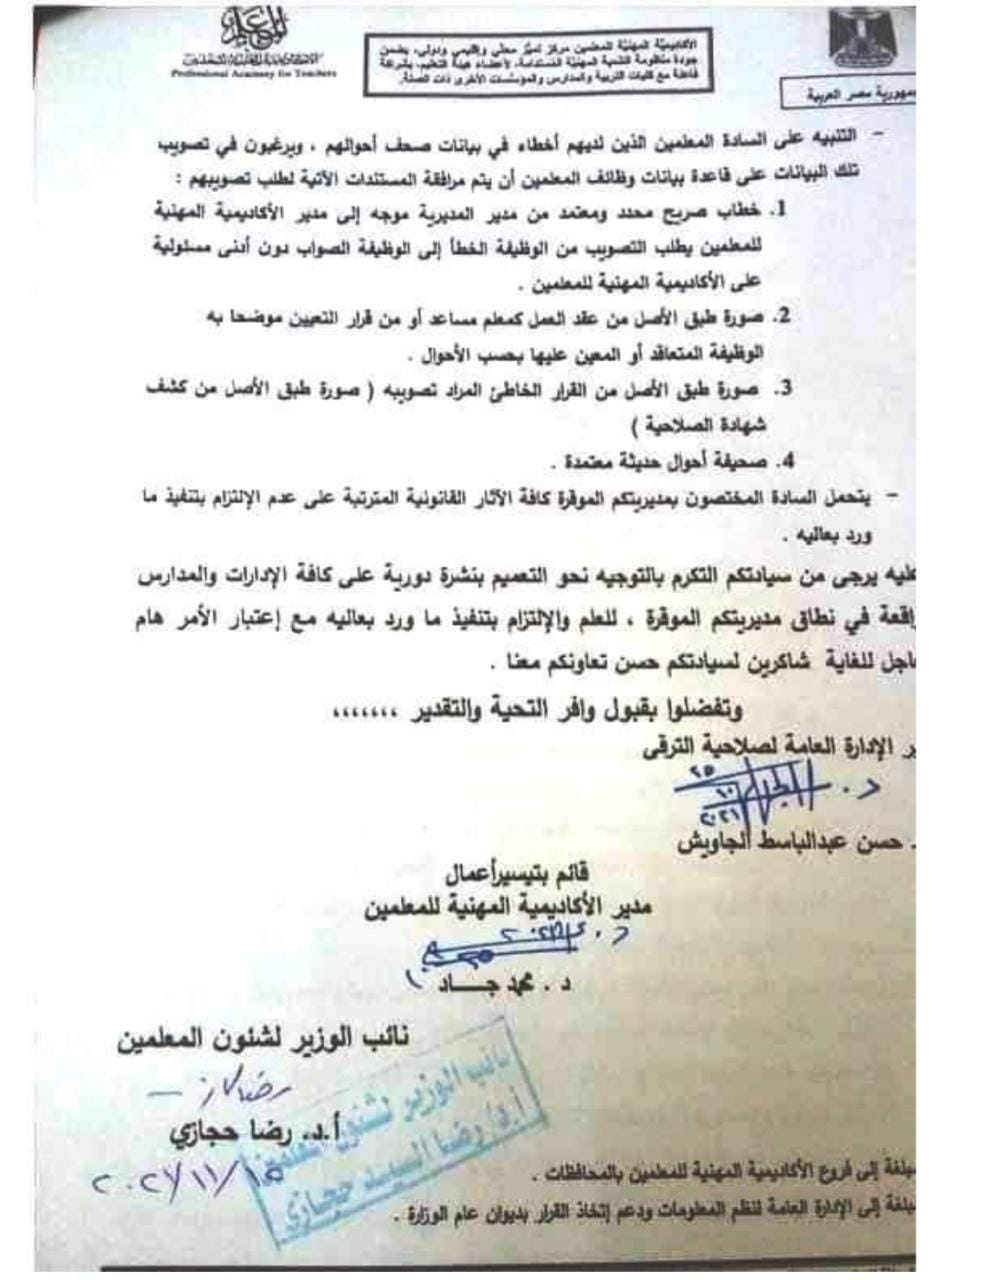 Professional Academy for Teachers
الأكاديمية المهنية للمعلمين مركز تميز محلي وإقليمي ودولي، يضمن
جودة منظومة التنمية المهنية المستدامة، لأعضاء هيئة التعليم، بشراكة
فاعلة مع كليات التربية والمدارس والمؤسسات الأخرى ذات الصلة.
جمهورية مصر العربية
- التنبيه على السادة المعلمين الذين لديهم أخطاء في بيانات صحف أحوالهم ، ويرغبون في تصويب
تلك البيانات على قاعدة بيانات وظائف المعلمين أن يتم مرافقة المستندات الآتية لطلب تصويبهم :
1. خطاب صريح محدد ومعتمد من مدير المديرية موجه إلى مدير الأكاديمية المهنية
للمعلمين بطلب التصويب من الوظيفة الخطأ إلى الوظيفة الصواب دون أدنى مسئولية
على الأكاديمية المهنية للمعلمين .
2. صورة طبق الأصل من عقد العمل كمعلم مساعد أو من قرار التعيين موضحا به
الوظيفة المتعاقد أو المعين عليها بحسب الأحوال .
3. صورة طبق الأصل من القرار الخاطئ المراد تصويبه ( صورة طبق الأصل من كشف
شهادة الصلاحية )
4. صحيفة أحوال حديثة معتمدة .
- يتحمل السادة المختصون بمديريتكم الموقرة كافة الآثار القانونية المترتبة على عدم الإلتزام بتنفيذ ما
ورد بعاليه .
عليه يرجى من سيادتكم التكرم بالتوجيه نحو التعميم بنشرة دورية على كافة الإدارات والمدارس
اقعة في نطاق مديريتكم الموقرة ، للعلم والإلتزام بتنفيذ ما ورد بعاليه مع إعتبار الأمر هام
اجل للغاية شاكرين لسيادتكم حسن تعاونكم معنا .
وتفضلوا بقبول وافر التحية والتقدير ،،،،،،،
ير الإدارة العامة لصلاحية الترقى
٢٥
١٠
٢٠٢١
. حسن عبدالباسط الجاويش
قائم بتيسيرأعمال
مدير الأكاديمية المهنية للمعلمين
د . محمد جـــاد
نائب الوزير لشئون المعلمين
أ.د. رضا حجازي
نائب الوزير لشئون المعلمين
أ.د/ رضا السيد حجازي
بلغة إلى فروع الأكاديمية المهنية للمعلمين بالمحافظات .
بلغة إلى الإدارة العامة لنظم المعلومات ودعم إتخاذ القرار بديوان عام الوزارة .